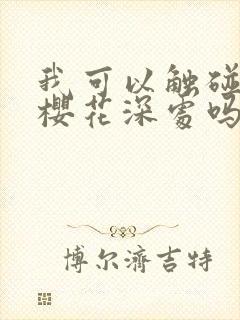 我可以触碰
樱花深处吗
博尔济吉特